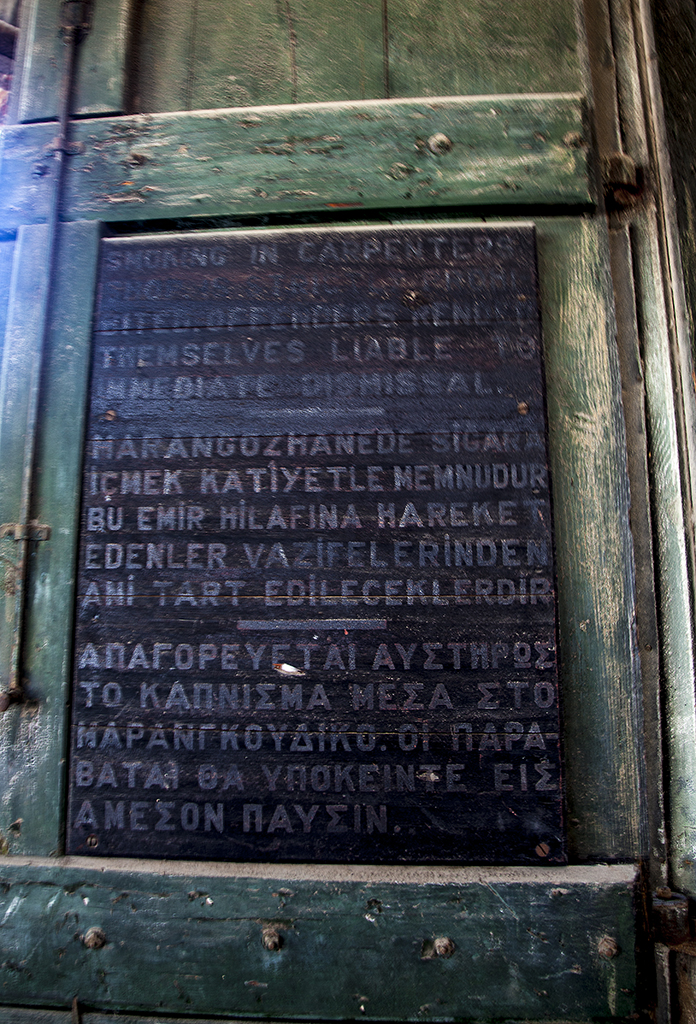 SMOKING IN CARPENTERS
OFFENDERS RENDER
THEMSELVES LIABLE TO
IMMEDIATE DISMISSAL.
MARANGOZHANEDE SİGARA
İÇMEK KATİYETLE MEMNUDUR
BU EMİR HİLAFINA HAREKET
EDENLER VAZİFELERİNDEN
ANİ TART EDİLECEKLERDİR
ΑΠΑΓΟΡΕΥΕΤΑΙ ΑΥΣΤΗΡΩΣ
ΤΟ ΚΑΠΝΙΣΜΑ ΜΕΣΑ ΣΤΟ
ΜΑΡΑΝΓΚΟΥΔΙΚΟ. ΟΙ ΠΑΡΑ-
ΒΑΤΑΙ ΘΑ ΥΠΟΚΕΙΝΤΕ ΕΙΣ
ΑΜΕΣΟΝ ΠΑΥΣΙΝ.